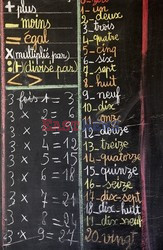 + plus
- moins
= égal
x (multiplié par)
: (divisé par)
3 fois 1 = 3
3 x
3 x 3 = 9
3 x 4 = 12
3 x 5 = 15
3 x 6 = 18
3 x
3 x 8 = 24
3 x
1 - un
2 - deux
3 - trois
4 - quatre
5 - cinq
6 - six
7 - sept
8 - huit
9 - neuf
10 - dix
11 - onze
12 - douze
13 - treize
14 - quatorze
15 - quinze
16 - seize
17 - dix-sept
18 - dix-huit
19 - dix-neuf
20 - vingt